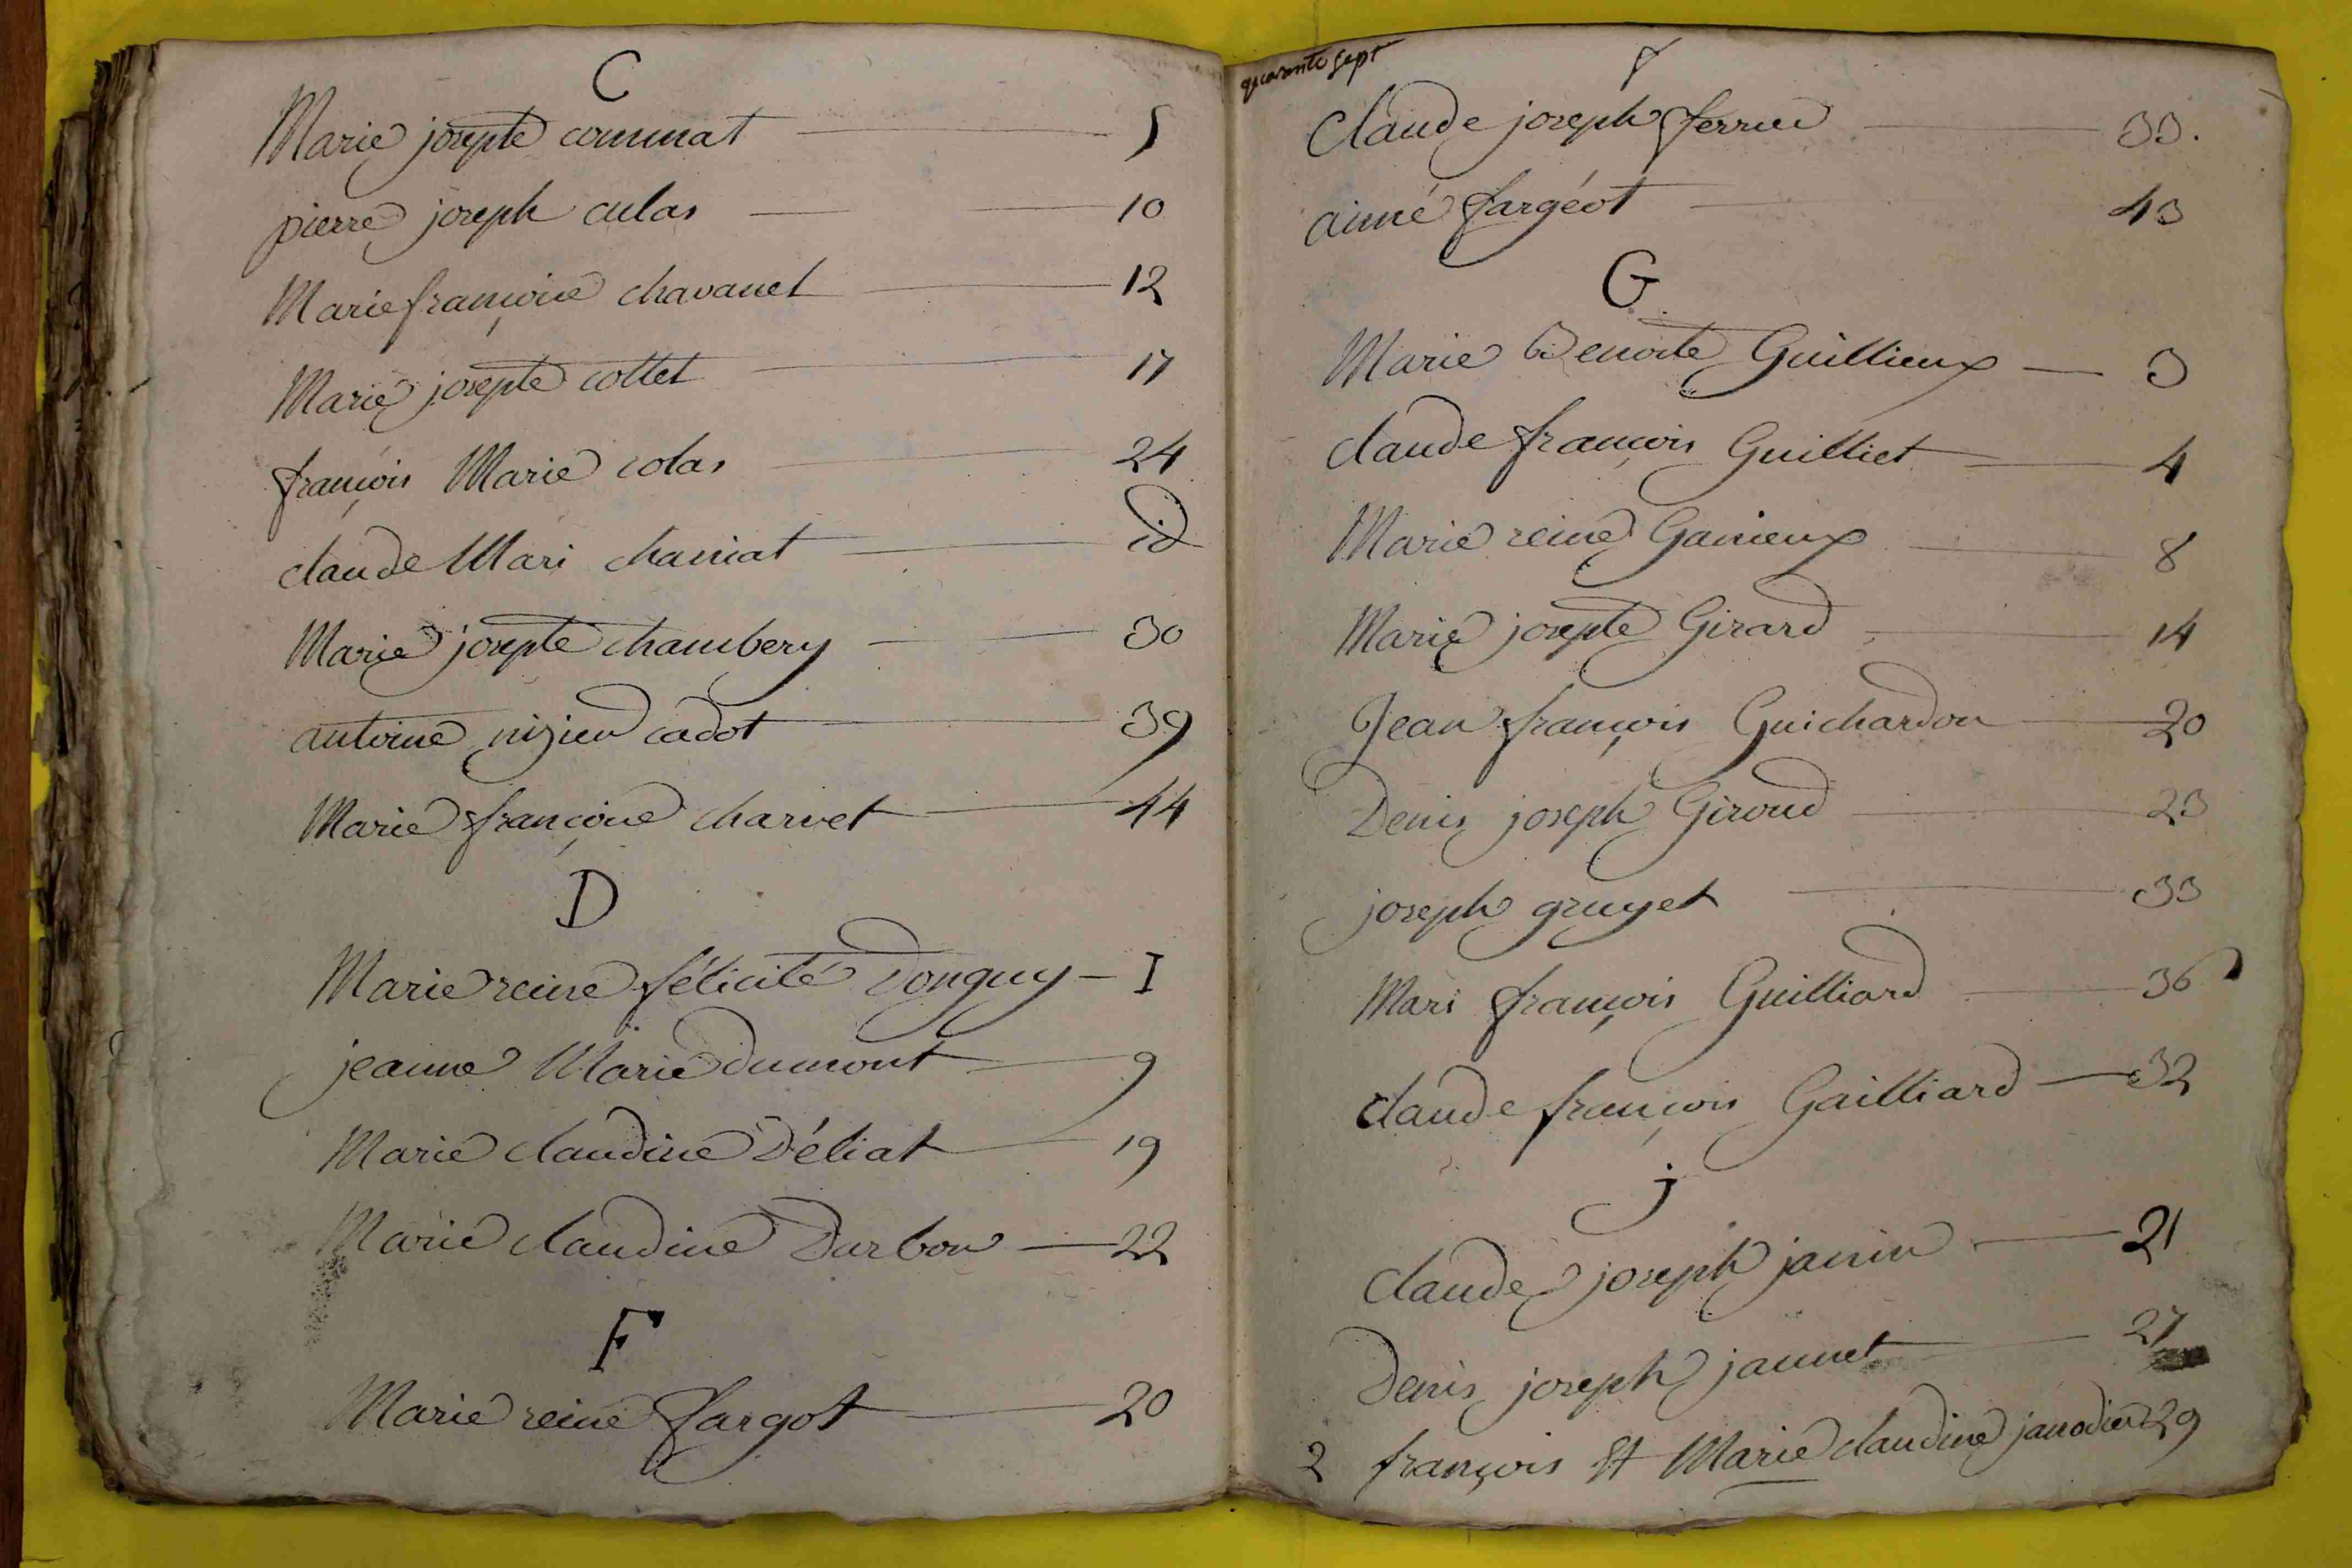 C
Marie josepte commat 5
pierre joseph culas 10
Marie françoise chavanet 12
Marie josepte cottet 17
françois Marie colas 24
claude Mari chaniat id
Marie josepte chambery 30
antoine nizieu cadot 39
Marie françoise charvet 44
D
Marie reine félicité Donguy 1
jeanne Marie dumont 9
Marie claudine Déliat 19
Marie claudine Darbon 22
F
Marie reine fargot 20
quarante sept
f
Claude joseph ferrier 33.
aimé fargéot 43
G
Marie Benoite Guillieux 3
claude françois Guilliet 4
Marie reine Ganieux 8
Marie josepte Girard 14
Jean françois Guichardon 20
Denis joseph Giroud 23
joseph gruyet 33
Mari françois Guilliard 36
claude françois Gailliard 32
j
Claude joseph janin 21
Denis joseph jaunet 27
2 françois Et Marie claudine janodier 29